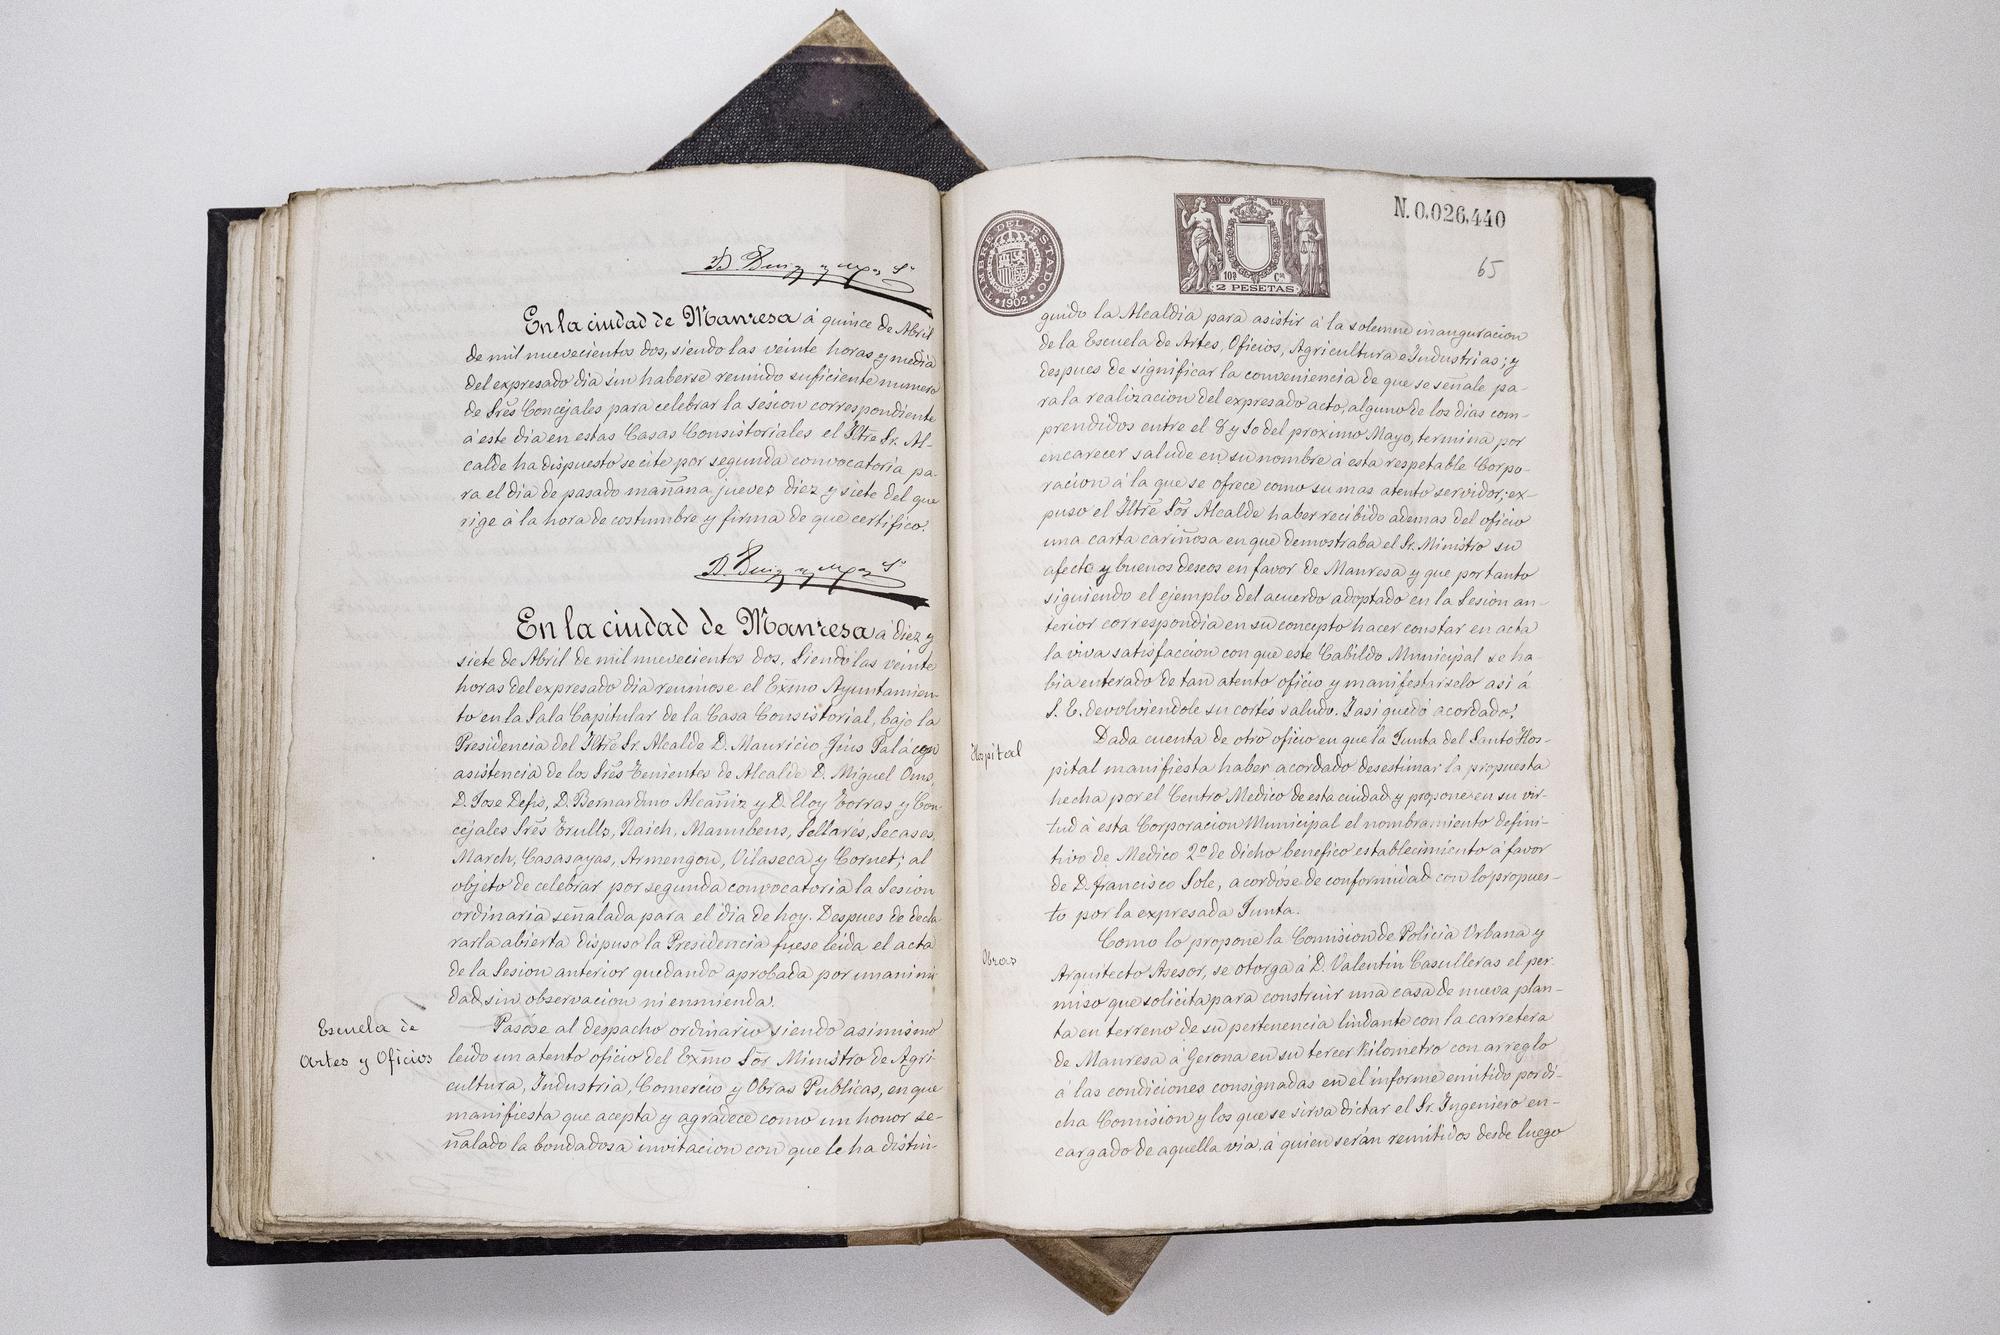 En la ciudad de Manresa á quince de Abril
de mil nuevecientos dos, siendo las veinte horas y media
del expresado dia sin haberse reunido suficiente numero
de Sres Concejales para celebrar la sesion correspondiente
á este dia en estas Casas Consistoriales el Iltre Sr. Al-
calde ha dispuesto se cite por segunda convocatoria pa-
ra el dia de pasado mañana jueves diez y siete del que
rige á la hora de costumbre y firma de que certifico.
En la ciudad de Manresa á diez y
siete de Abril de mil nuevecientos dos, Siendo las veinte
horas del expresado dia reuniose el Exmo Ayuntamien-
to en la Sala Capitular de la Casa Consistorial, bajo la
Presidencia del Iltre Sr. Alcalde D. Mauricio Fius Palá con
asistencia de los Sres Tenientes de Alcalde D. Miguel Oms,
D. Jose Defis, D. Bernardino Alcañiz y D. Eloy Torras, y Con-
cejales Sres Trulls, Raich, Manubens, Sellarés, Secases,
March, Casasayas, Armengou, Vilaseca y Cornet; al
objeto de celebrar por segunda convocatoria la Sesion
ordinaria señalada para el dia de hoy. Despues de decla
rarla abierta dispuso la Presidencia fuese leida el acta
de la Sesion anterior quedando aprobada por unanimi
dad sin observacion ni enmienda.
Escuela de
Artes y Oficios
Pasóse al despacho ordinario siendo asimismo
leido un atento oficio del Exmo Sor Ministro de Agri-
cultura, Industria, Comercio y Obras Publicas, en que
manifiesta que acepta y agradece como un honor se-
ñalado la bondadosa invitacion con que le ha distin-
TIMBRE DEL ESTADO
1902
AÑO 1902
10ª Cª
2 PESETAS
N. 0.026.440
65
guido la Alcaldia para asistir á la solemne inauguracion
de la Escuela de Artes, Oficios, Agricultura e Industrias; y
despues de significar la conveniencia de que se señale pa-
ra la realizacion del expresado acto, alguno de los dias com-
prendidos entre el 8 y 10 del proximo Mayo, termina por
encarecer salude en su nombre á esta respetable Corpo-
racion á la que se ofrece como su mas atento servidor; ex-
puso el Iltre Sor Alcalde haber recibido ademas del oficio
una carta cariñosa en que demostraba el Sr. Ministro su
afecto y buenos deseos en favor de Manresa y que por tanto
siguiendo el ejemplo del acuerdo adoptado en la Sesion an-
terior correspondia en su concepto hacer constar en acta
la viva satisfaccion con que este Cabildo Municipal se ha-
bia enterado de tan atento oficio y manifestarselo asi á
S. E. devolviendole su cortés saludo. I asi quedó acordado.
Hospital
Dada cuenta de otro oficio en que la Junta del Santo Hos-
pital manifiesta haber acordado desestimar la propuesta
hecha por el Centro Medico de esta ciudad y propone en su vir-
tud á esta Corporacion Municipal el nombramiento defini-
tivo de Medico 2º de dicho benefico establecimiento á favor
de D. Francisco Sole, acordóse de conformidad con lo propues-
to por la expresada Junta.
Obras
Como lo propone la Comision de Policia Urbana y
Arquitecto Asesor, se otorga á D. Valentin Casulleras el per-
miso que solicita para construir una casa de nueva plan-
ta en terreno de su pertenencia lindante con la carretera
de Manresa á Gerona en su tercer kilometro con arreglo
á las condiciones consignadas en el informe emitido por di-
cha Comision y los que se sirva dictar el Sr. Ingeniero en-
cargado de aquella via, á quien serán remitidos desde luego